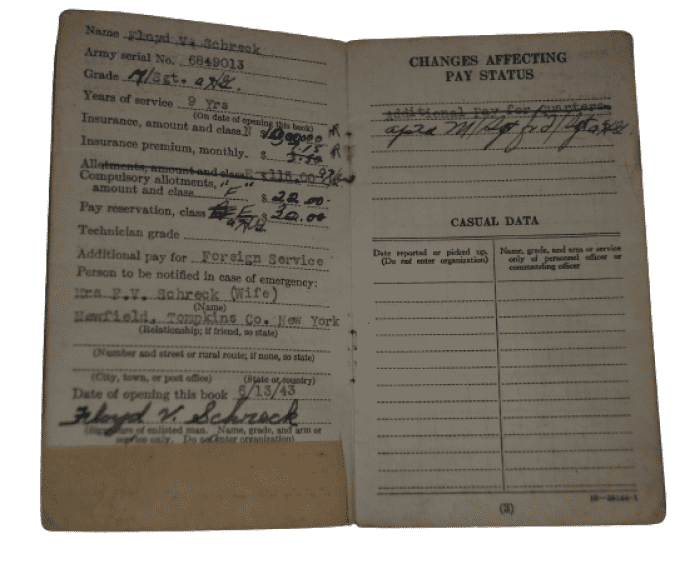 Name Floyd V. Schreck
Army serial No. 6849013
Grade M/Sgt.
Years of service 9 Yrs
(On date of opening this book)
Insurance, amount and class N $
Insurance premium, monthly. $
Allotments, amount and class E $115.00
Compulsory allotments, " "
amount and class F $ 22.00
Pay reservation, class E $
Technician grade
Additional pay for Foreign Service
Person to be notified in case of emergency:
Mrs F.V. Schreck (Wife)
(Name)
Newfield, Tompkins Co. New York
(Relationship; if friend, so state)
(Number and street or rural route; if none, so state)
(City, town, or post office) (State or country)
Date of opening this book /13/43
Floyd V. Schreck
(Signature of enlisted man. Name, grade, and arm or
service only. Do not enter organization)
CHANGES AFFECTING
PAY STATUS
Additional Pay for Quarters
M/Sgt
CASUAL DATA
Date reported or picked up.
(Do not enter organization)
Name, grade, and arm or service
only of personnel officer or
commanding officer
(3)